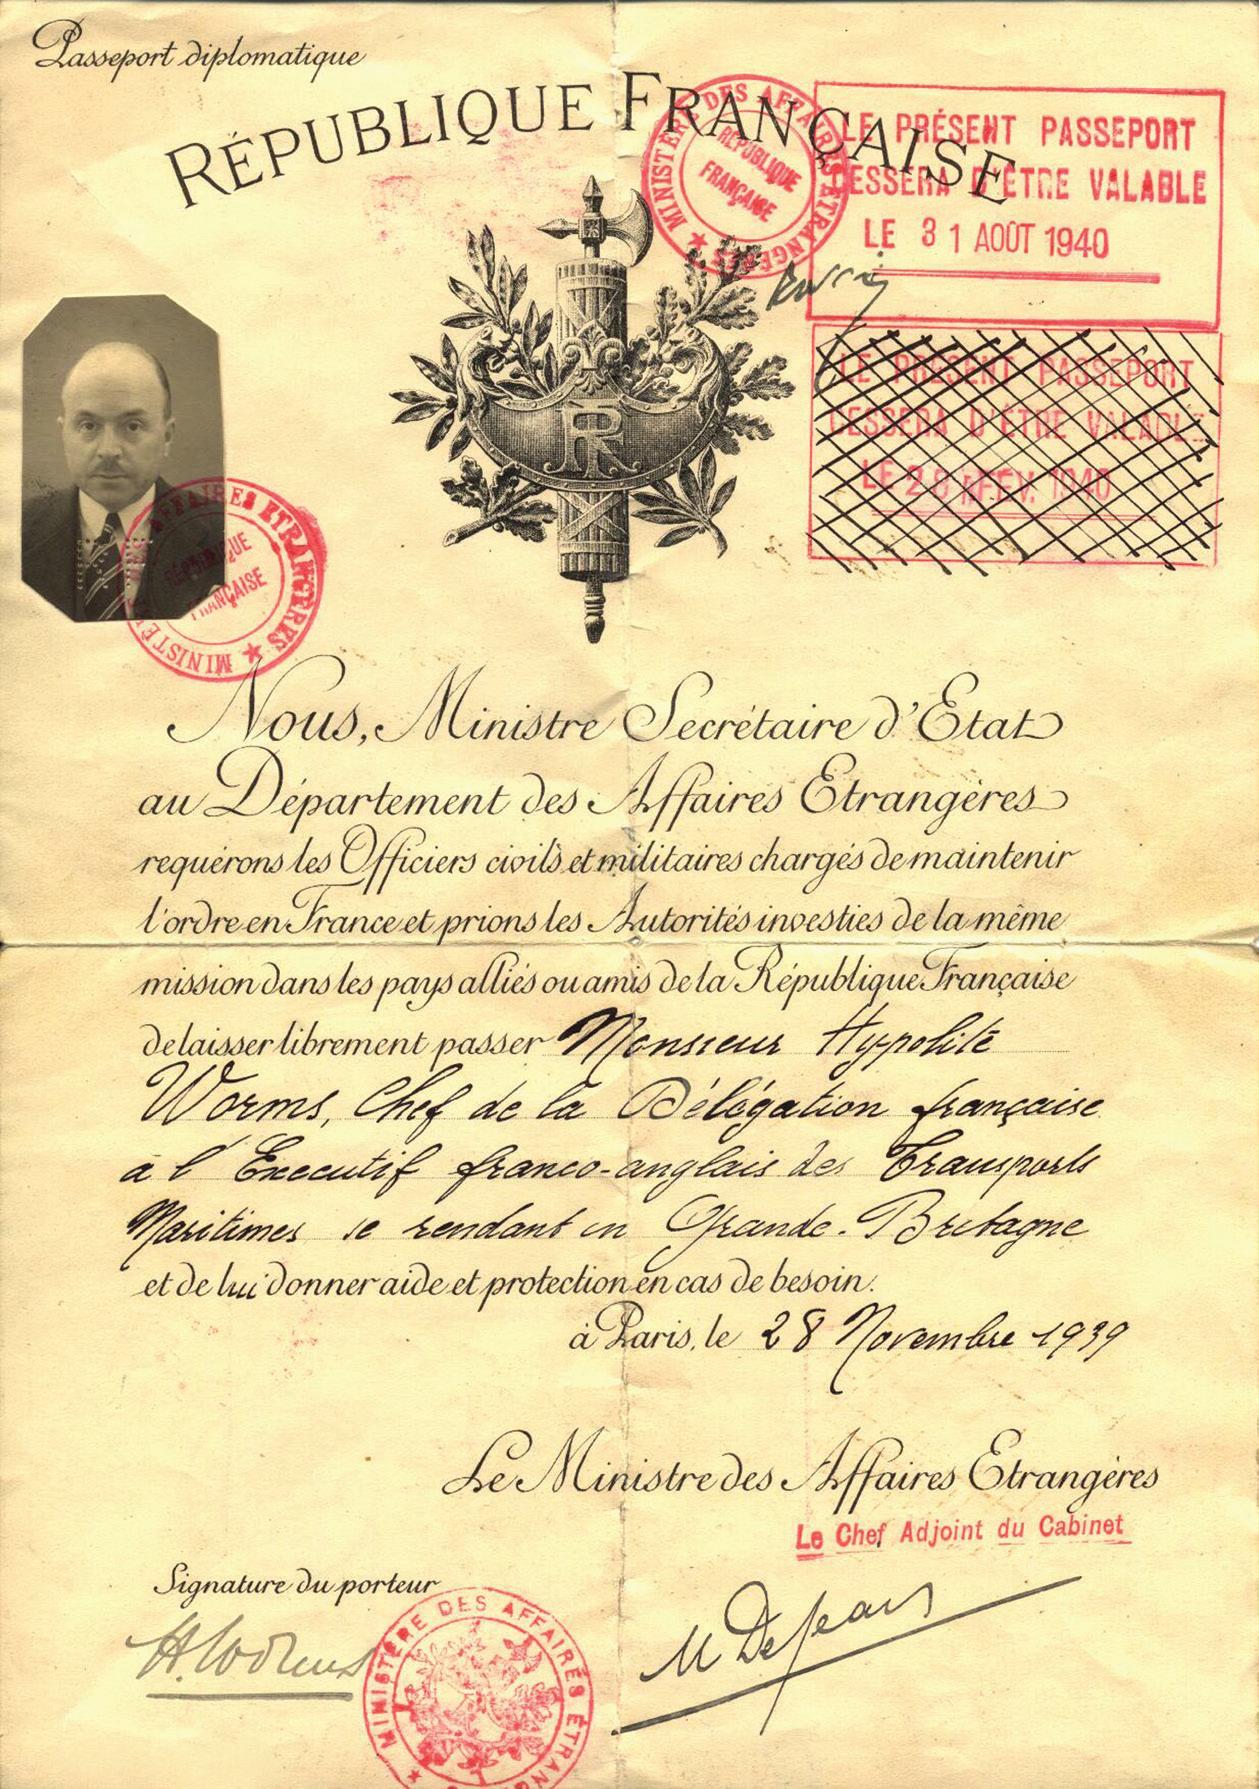 Passeport diplomatique
RÉPUBLIQUE FRANÇAISE
MINISTÈRE DES AFFAIRES ETRANGÈRES
RÉPUBLIQUE
FRANÇAISE
LE PRÉSENT PASSEPORT
CESSERA D'ÊTRE VALABLE
LE 31 AOÛT 1940
LE PRÉSENT PASSEPORT
CESSERA D'ÊTRE VALABLE
LE 28 FEV. 1940
RF
MINISTÈRE AFFAIRES ETRANGÈRES
RÉPUBLIQUE
FRANÇAISE
Nous, Ministre Secrétaire d'Etat
au Département des Affaires Etrangères
requérons les Officiers civils et militaires chargés de maintenir
l'ordre en France et prions les Autorités investies de la même
mission dans les pays alliés ou amis de la République Française
de laisser librement passer Monsieur Hypolite
Worms, Chef de la Délégation française
à l'Executif franco-anglais des Transports
Maritimes se rendant en Grande-Bretagne
et de lui donner aide et protection en cas de besoin.
à Paris, le 28 Novembre 1939
Le Ministre des Affaires Etrangères
Le Chef Adjoint du Cabinet
Signature du porteur
H. Worms
M Dejean
MINISTÈRE DES AFFAIRES ETRANGÈRES